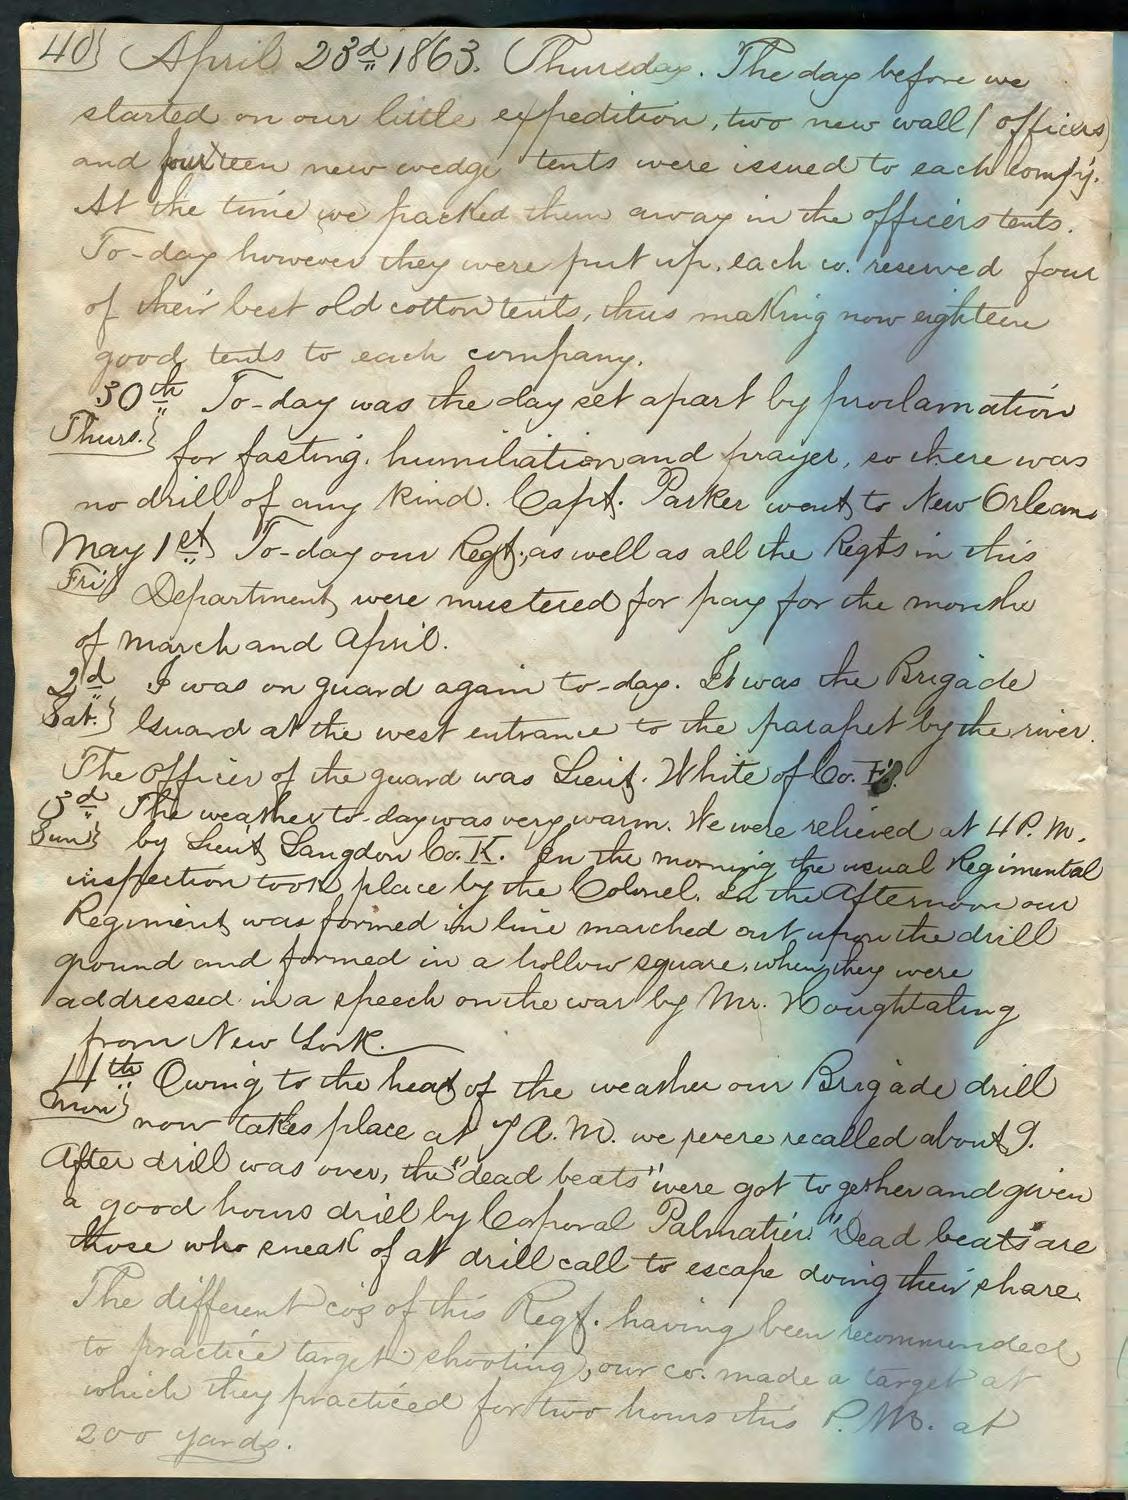 40} April 23d 1863. Thursday. The day before we
started on our little expedition, two new wall (officers)
and fourteen new wedge tents were issued to each compy.
At the time we packed them away in the officers tents.
To-day however they were put up, each co. reserved four
of their best old cotton tents, thus making now eighteen
good tents to each company.
30th To-day was the day set apart by proclamation
Thurs.} for fasting, humiliation and prayer, so there was
no drill of any kind. Capt. Parker went to New Orleans
May 1st} To-day our Regt, as well as all the Regts in this
Fri} Department, were mustered for pay for the months
of march and April.
2d I was on guard again to-day. It was the Brigade
Sat.} Guard at the west entrance to the parapet by the river.
The officer of the guard was Lieut. White of Co. E.
3d The weather to-day was very warm. We were relieved at 4 P.M.
Sun} by Lieut Langdon Co. K. In the morning the usual Regimental
inspection took place by the Colonel. In the Afternoon our
Regiment was formed in line marched out upon the drill
ground and formed in a hollow square, when they were
addressed in a speech on the war by Mr. Houghtaling
from New York.
4th Owing to the heat of the weather our Brigade drill
Mon} now takes place at 7 A.M. we were recalled about 9.
After drill was over, the "dead beats" were got to gether and given
a good hours drill by Corporal Palmatier. "Dead beats" are
those who sneak of at drill call to escape doing their share.
The different cos of this Regt. having been recommended
to practice target shooting, our co. made a target at
which they practiced for two hours this P.M. at
200 yards.